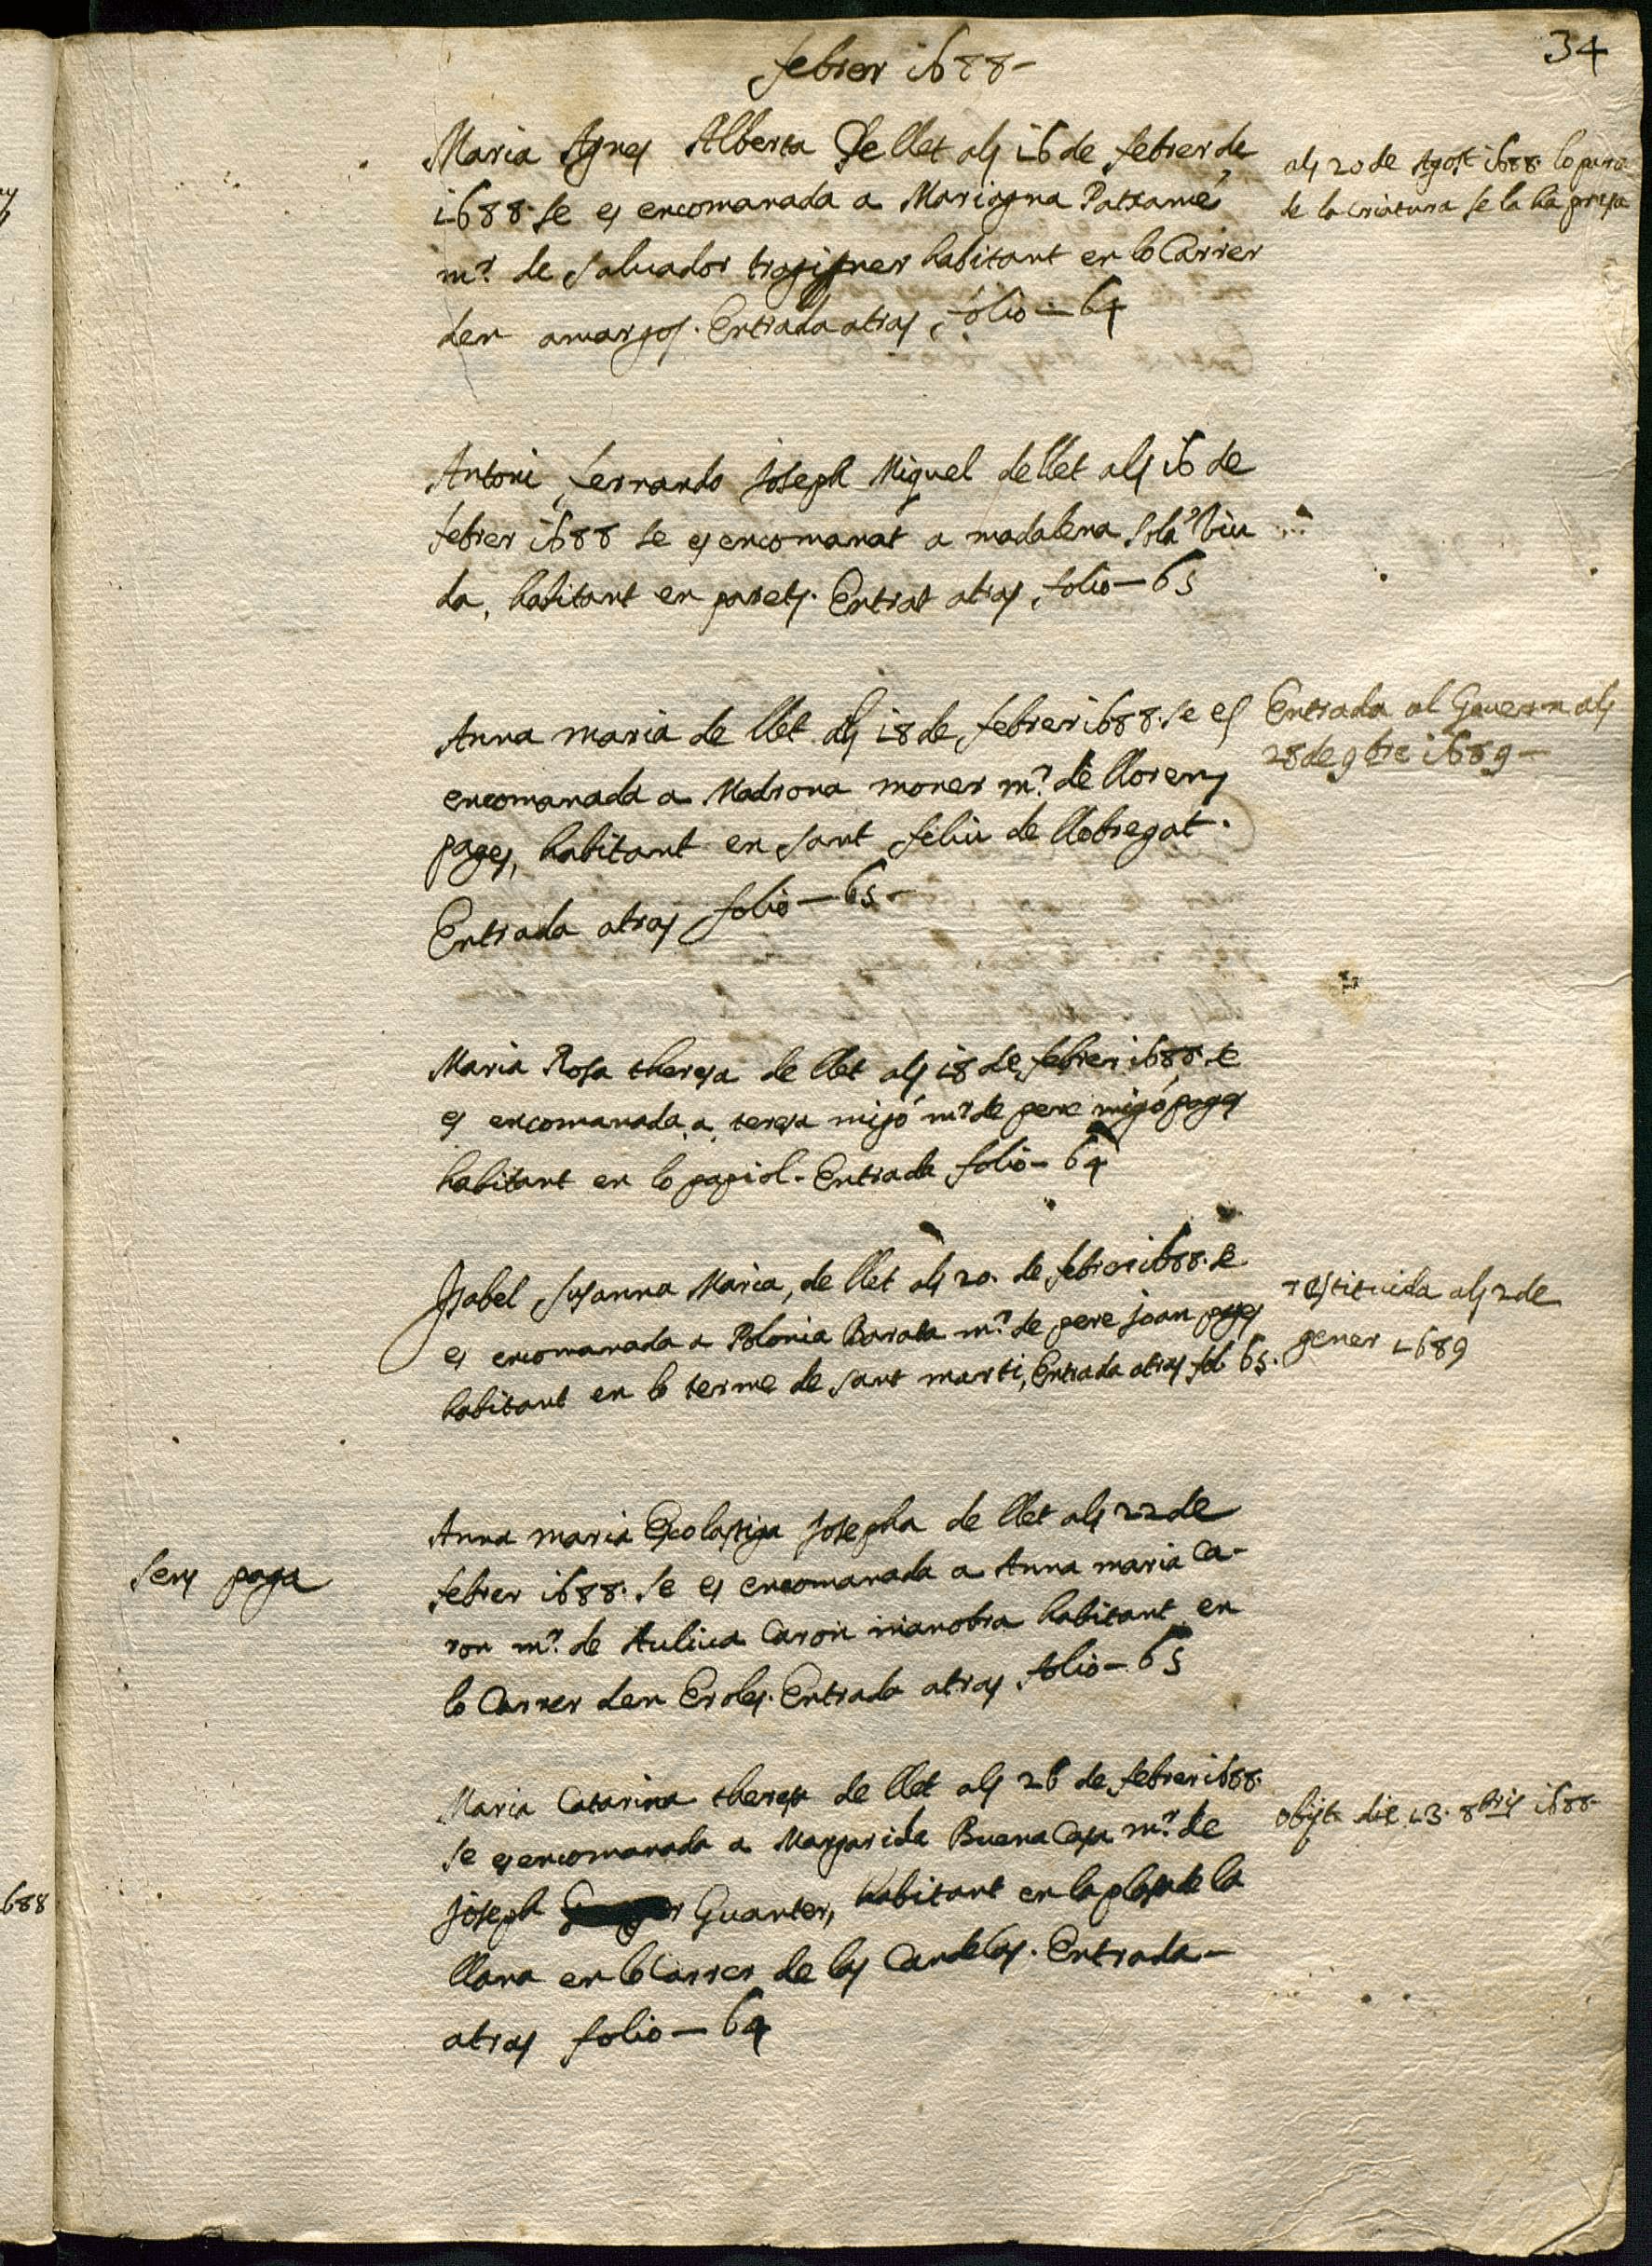 34
febrer 1688-
Maria Agnes Alberta de llet als 16 de febrer de
1688. se es encomanada a Mariagna Patxame
mr. de saluador traginer habitant en lo Carrer
den amargos. Entrada atras, folio - 64
als 20 de Agost 1688. lo pare
de la criatura se la ha presa
Antoni, fernando Joseph Miquel de llet als 16 de
febrer 1688 se es encomanat a madalena sola viu
da, habitant en parets. Entrat atras, folio - 65
Anna maria de llet als 18 de febrer 1688. se es
encomanada a Madrona moner mr. de llorens
pages, habitant en sant feliu de llobregat.
Entrada atras folio - 65 -
Entrada al Gouern als
28 de 9bre 1689 -
Maria Rosa theresa de llet als 18 de febrer 1688. se
es encomanada a teresa mijó mr. de pere mijó pages
habitant en lo papiol. Entrada folio - 64
Isabel susanna Maria, de llet als 20. de febrer 1688. se
es encomanada a Polonia Barata mr. de pere joan pages
habitant en lo terme de sant marti, Entrada atras fol. 65.
restituida als 2 de
gener 1689
sens paga
Anna maria Escolastiga Josepha de llet als 22 de
febrer 1688. se es encomanada a Anna maria Ca-
ron mr. de Caron manobra habitant en
lo Carrer den Eroles. Entrada atras folio - 65
Maria Catarina theresa de llet als 26 de febrer 1688.
se es encomanada a Margarida Buena Casa mr. de
Joseph Guanter, habitant en la plasa de la
llana en lo Carrer de las Candelas. Entrada -
atras folio - 64
obijt die 13. 8bris 1688-
688